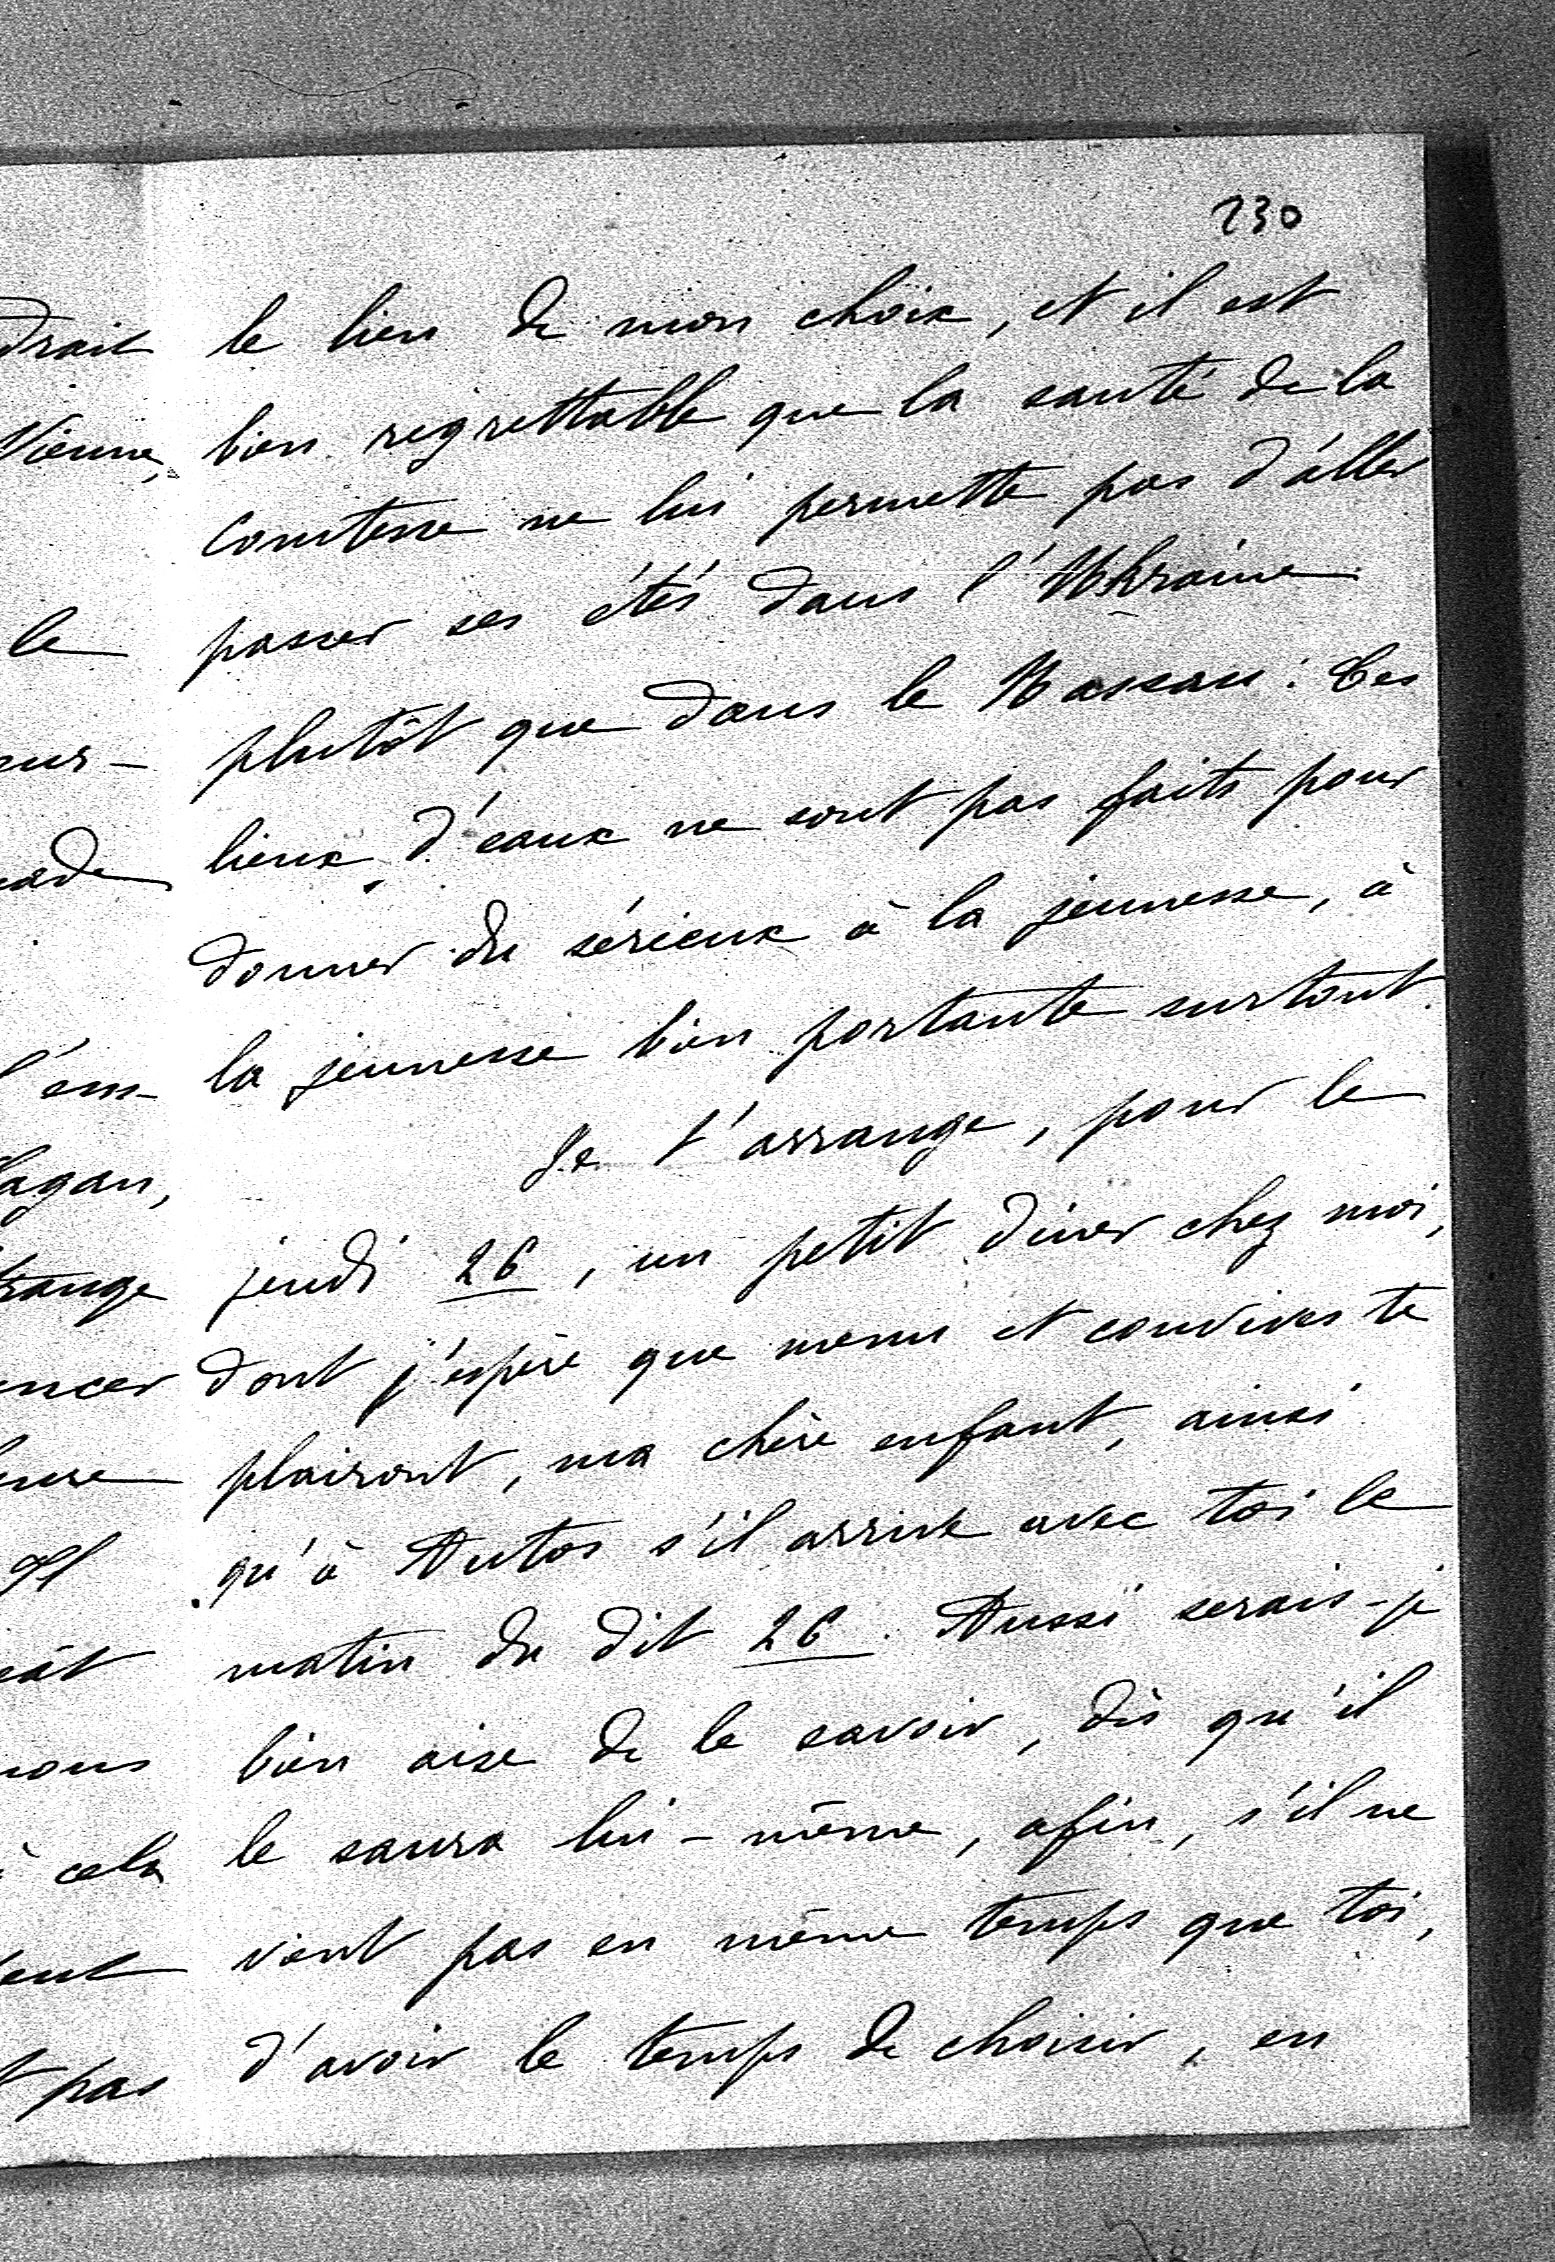 230
le lieu de mon choix, et il est
bien regrettable que la santé de la
Comtesse ne lui permette pas d'aller
passer ses étés dans l'Ukraine
plutôt que dans le Nassau : Ces
lieux d'eaux ne sont pas faits pour
donner du sérieux à la jeunesse, à
la jeunesse bien portante surtout.
Je t'arrange, pour le
jeudi 26, un petit dîner chez moi,
dont j'espère que menu et convives te
plairont, ma chère enfant, ainsi
qu'à Autos s'il arrive avec toi le
matin du dit 26. Aussi serais-je
bien aise de le savoir, dès qu'il
le saura lui-même, afin, s'il ne
vient pas en même temps que toi,
d'avoir le temps de choisir, en
drait
Vienne,
le
eur-
ade
l'em-
Sagan,
range
encer
eure
Il
ât
nous
à cela
ent
t pas